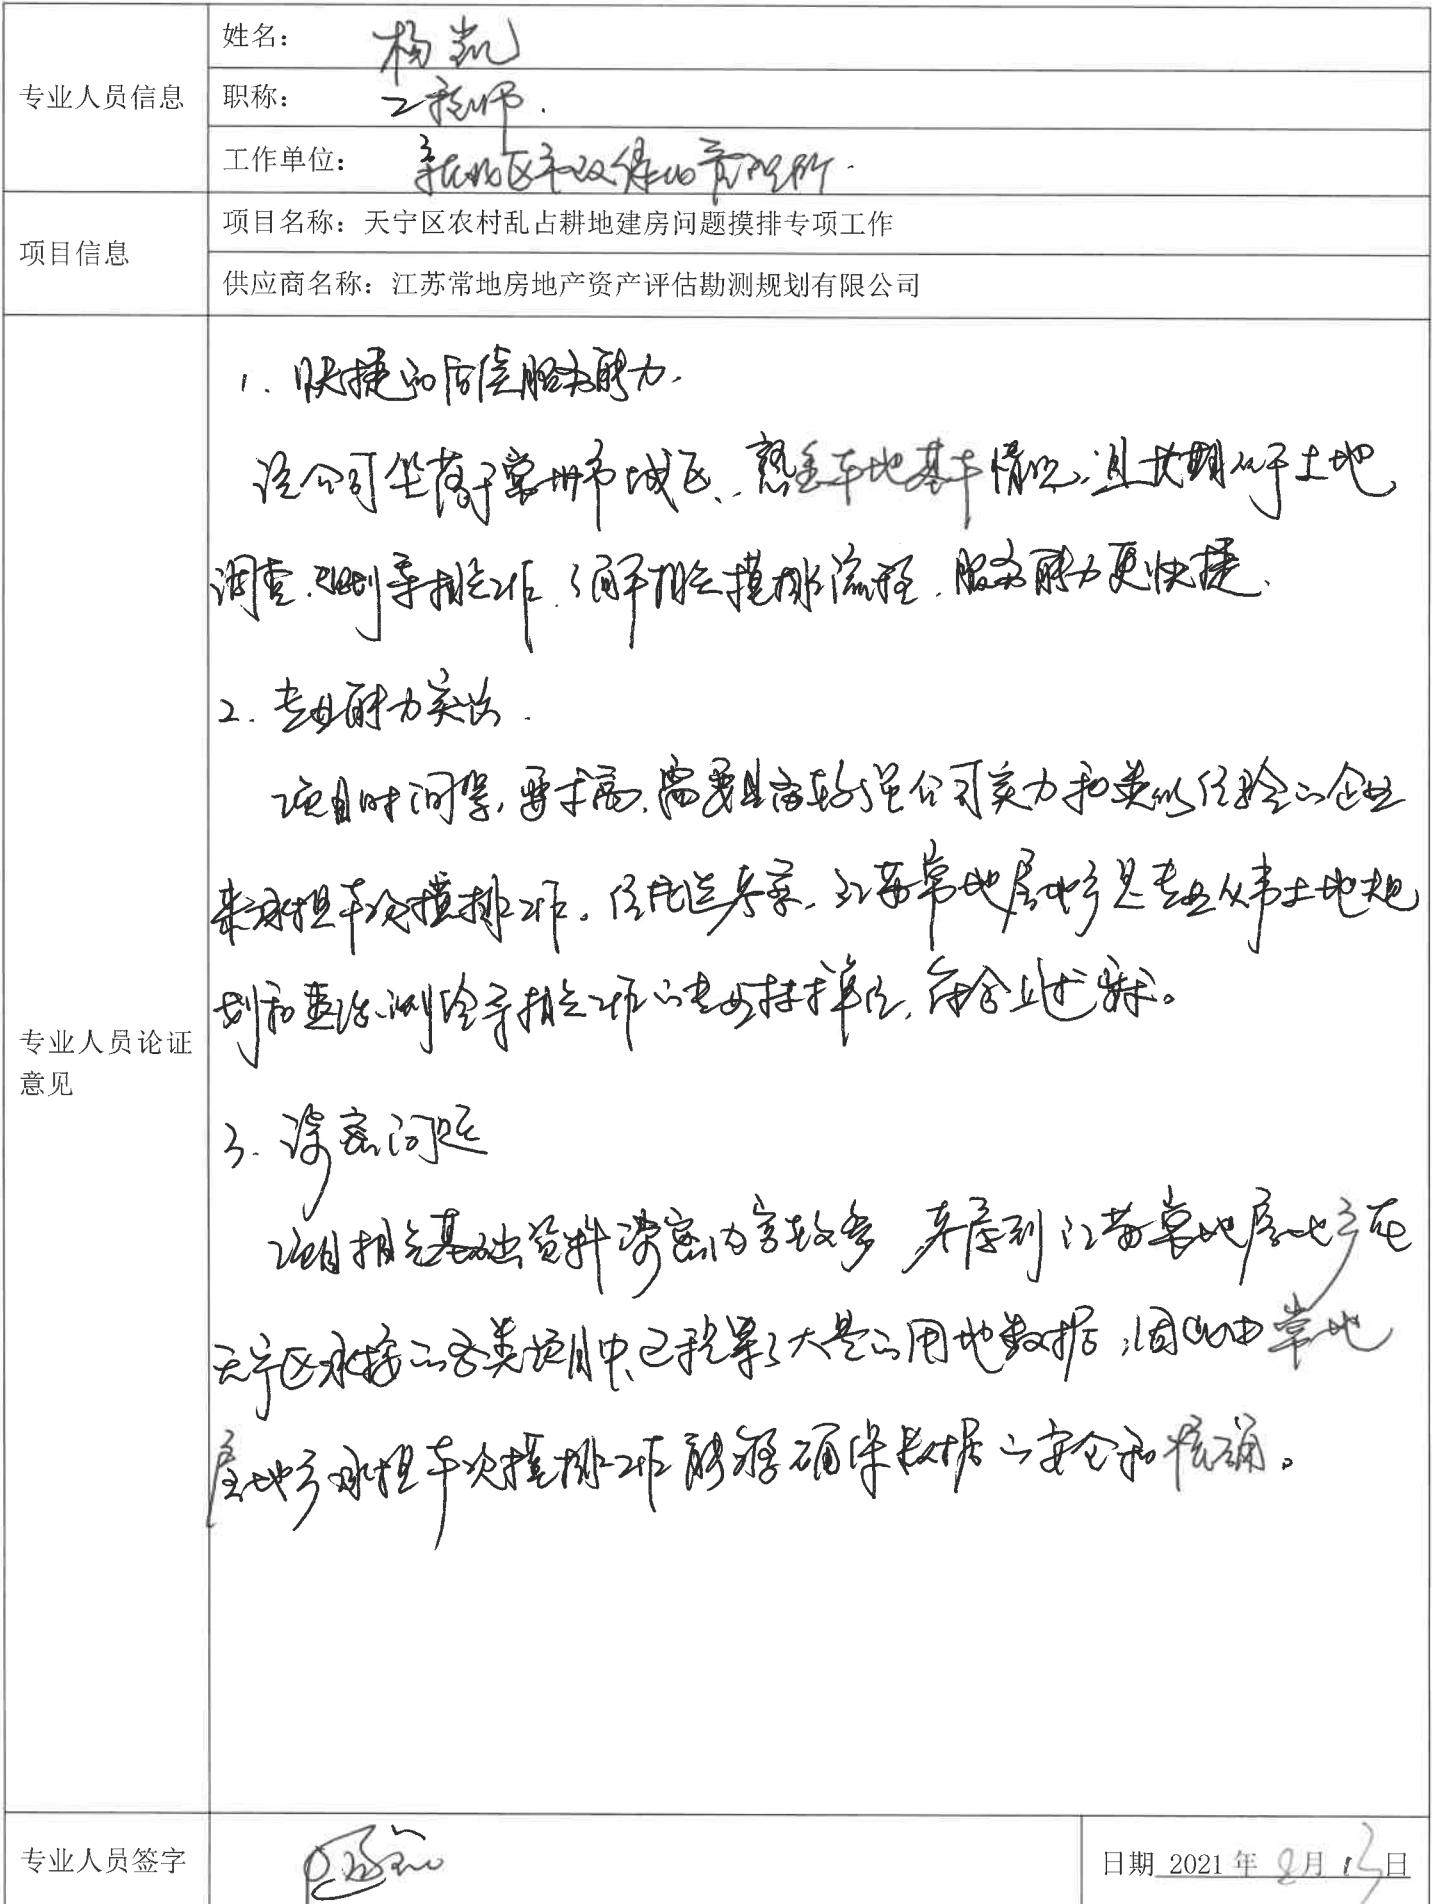 专业人员信息
姓名：杨凯
职称：工程师.
工作单位：区市政绿化管理所.
项目信息
项目名称：天宁区农村乱占耕地建房问题摸排专项工作
供应商名称：江苏常地房地产资产评估勘测规划有限公司
专业人员论证
意见
1. 快捷的后续服务能力.
该公司坐落于常州市城区、熟悉本地基本情况，且长期从事土地
调查、规划等相关工作，了解相关摸排流程，服务能力更快捷.
2. 专业能力突出.
项目时间紧，要求高，需要具备较强公司实力和类似经验的企业
来承担本次摸排工作。经比选考察，江苏常地房地产是专业从事土地规
划和勘测等相关工作的专业技术单位，符合上述要求。
3. 涉密问题
项目相关基础资料涉密内容较多，考虑到江苏常地房地产在
天宁区承接的各类项目中，已积累了大量的用地数据，因此由常地
房地产承担本次摸排工作能够确保数据的安全和准确。
专业人员签字
日期 2021 年 8月 13日